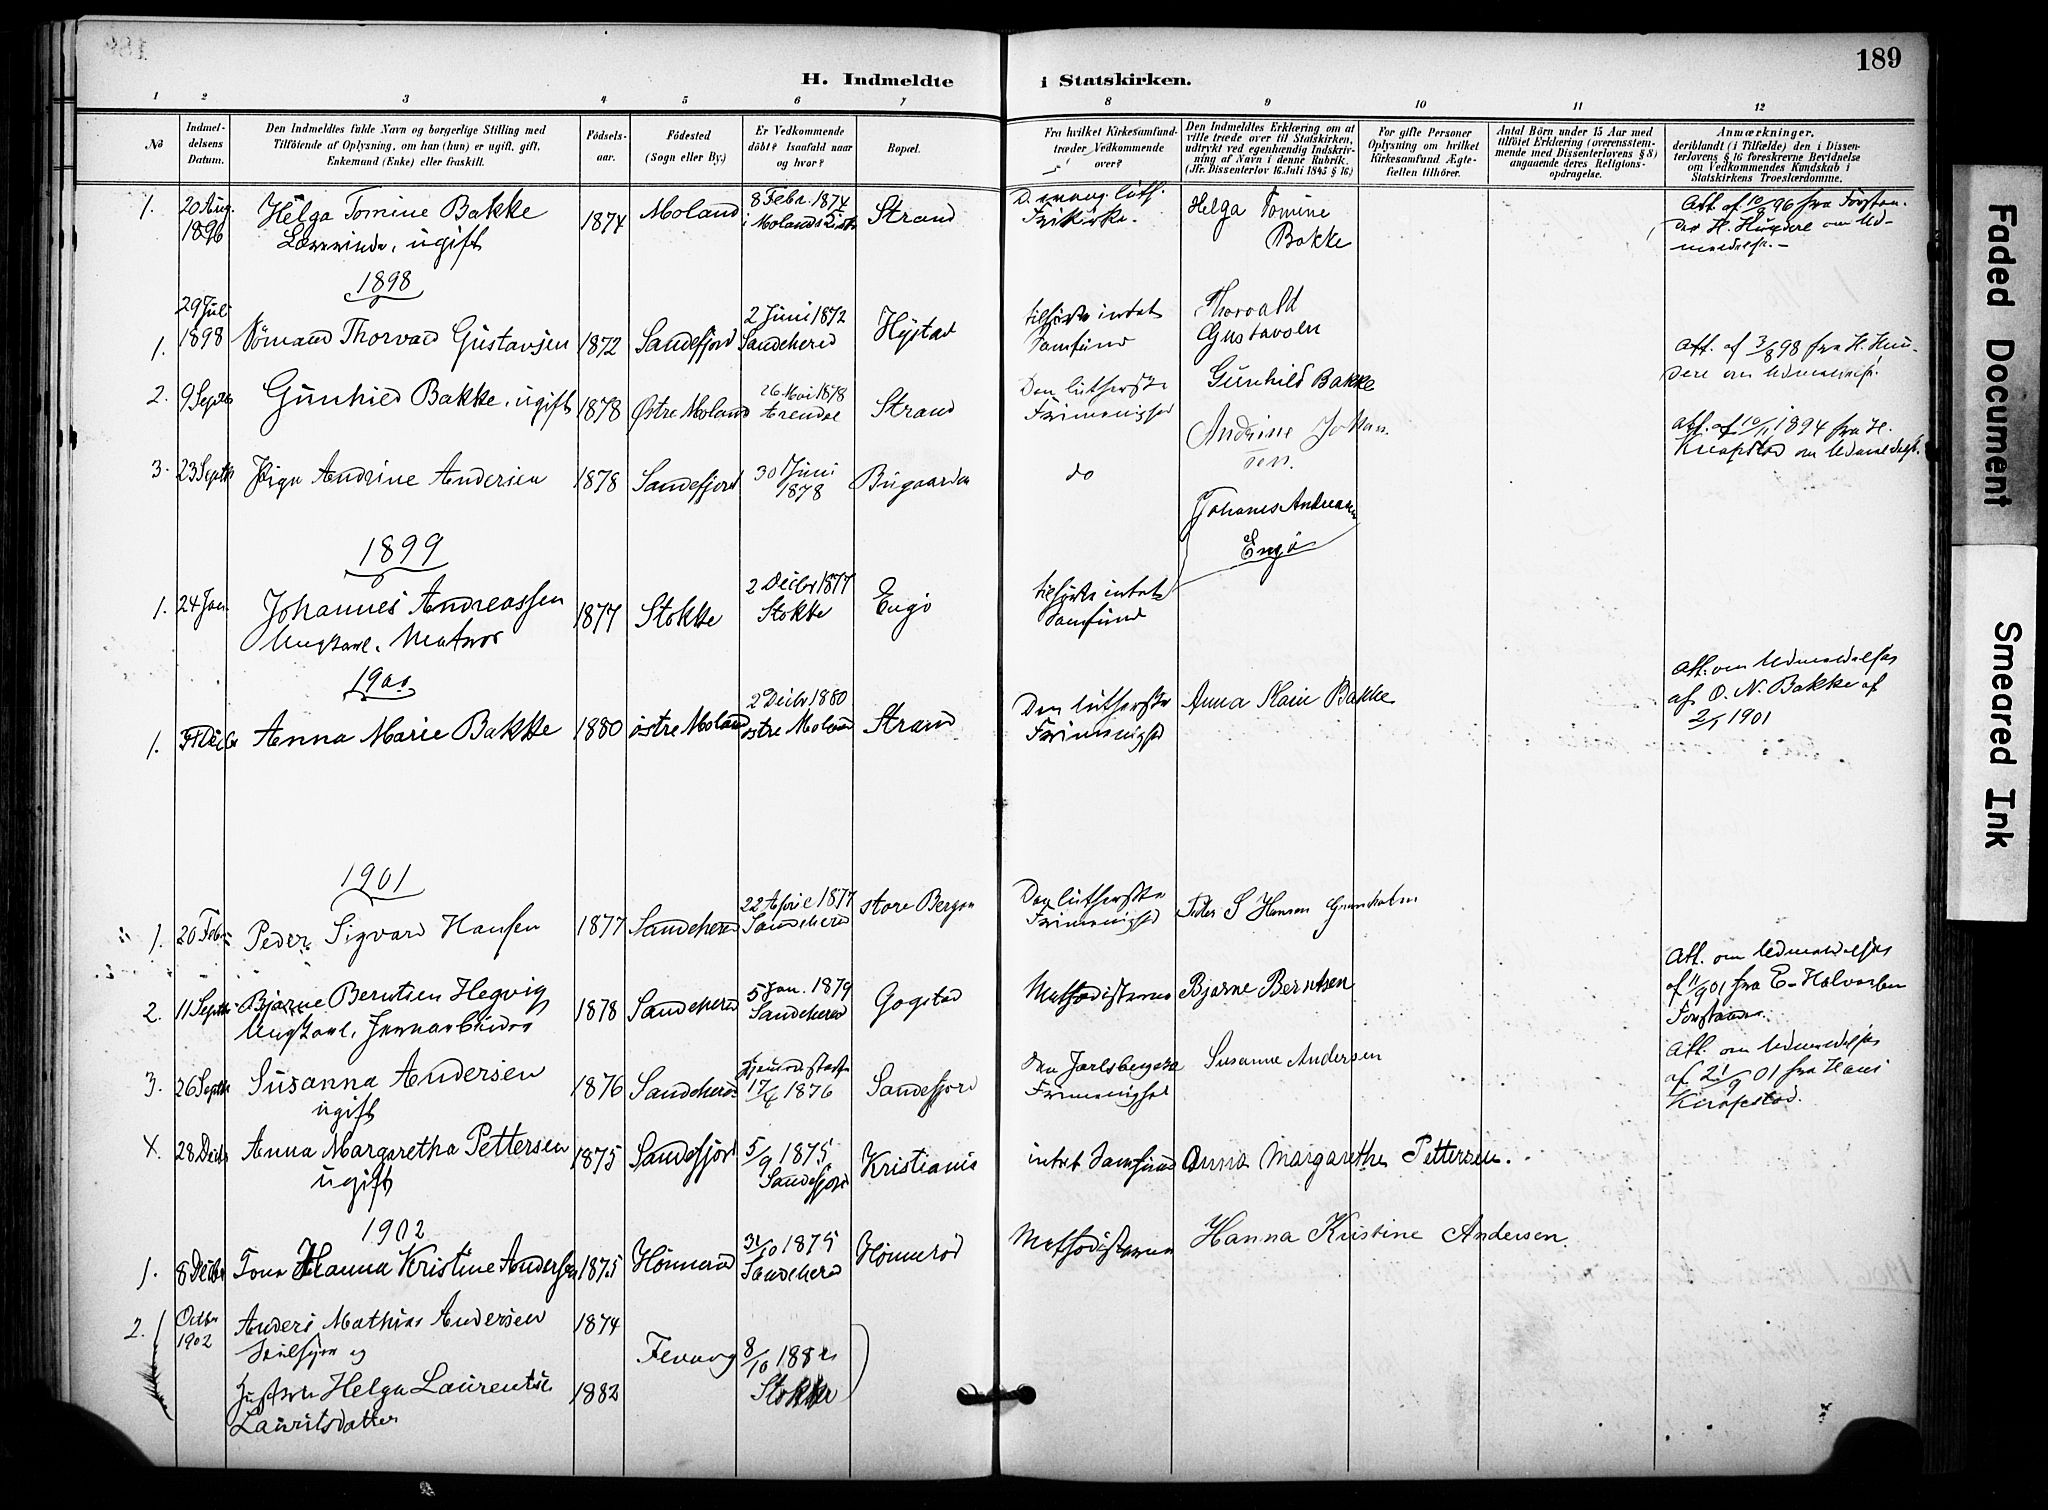 189
H. Indmeldte i Statskirken.
1 2 3 4 5 6 7 8 9 10 11 12
No
Indmel-
delsens
Datum.
Den Indmeldtes fulde Navn og borgerlige Stilling med
Tilföiende af Oplysning, om han (hun) er ugift, gift,
Enkemand (Enke) eller fraskilt.
Födsels-
aar.
Födested
(Sogn eller By.)
Er Vedkommende
döbt? Isaafald naar
og hvor?
Bopæl.
Fra hvilket Kirkesamfund
træder Vedkommende
over?
Den Indmeldtes Erklæring om at
ville træde over til Statskirken,
udtrykt ved egenhændig Indskriv-
ning af Navn i denne Rubrik.
(Jfr. Dissenterlov 16. Juli 1845 § 16)
For gifte Personer
Oplysning om hvilket
Kirkesamfund Ægte-
fællen tilhörer.
Antal Börn under 15 Aar med
tilföiet Erklæring (overensstem-
mende med Dissenterlovens § 8)
angaaende deres Religions-
opdragelse.
Anmærkninger.
deriblandt (i Tilfælde) den i Dissen-
terlovens § 16 foreskrevne Bevidnelse
om Vedkommendes Kundskab i
Statskirkens Troeslærdomme.
1. 20 Aug. 1896
Helga Tomine Bakke
Lærerinde, ugift
1874
Moland
8 Febr. 1874
i Molands
Strand
Frikirke.
Helga Tomine
Bakke
Att. af 96 fra Forstan-
der H. om Ud-
meldelse.-
1898
1. 29 Juli 1898
Sömand Thorvald Gustavsen
1872
Sandefjord
2 Juni 1872
Sandeherred
Hystad
tilhörte intet
Samfund
Thorvald
Gustavsen
Att. af 3/8 98 fra H.
om Udmeldelse.
2. 9 Septbr
Gunhild Bakke, ugift
1878
Östre Moland
26 Mai 1878
Arendal
Strand
Den lutherske
Frimenighed
Gunhild Bakke
Att. af 1894 fra H.
Knapstad om Udmeldelse.
3. 23 Septbr
Andrine Andersen
1878
Sandefjord
30 Juni
1878
Bugaarden
do
Andrine Johan
sen.
1899
1. 24 Jan.
Johannes Andreassen
Ungkarl. Matros
1877
Stokke
2 Decbr 1877
Stokke
Engö
tilhörte intet
Samfund
Johannes Andreasen
Engö
1900
1. Decbr
Anna Marie Bakke
1880
östre Moland
2 Decbr 1880
östre Moland
Strand
Den lutherske
Frimenighed
Anna Marie Bakke
Att. om Udmeldelse
af O. N. Bakke af
2/1 1901
1901
1. 20 Febr
Peder Sigvard Hansen
1877
Sandeherred
22 April 1877
Sandeherred
store Bergan
Den lutherske
Frimenighed
Peder S Hansen
2. 11 Septbr
Bjarne Berntsen Hegvig
Ungkarl, Jernarbeider
1878
Sandeherred
5 Jan. 1879
Sandeherred
Gogstad
Methodisterne
Bjarne Berntsen
Att. om Udmeldelse
af 11/9 01 fra E. Halvorsen
Forstander.
3. 26 Septbr
Susanna Andersen
ugift
1876
Sandeherred
hjemmedöbt
17/4 1876
Sandefjord
den Jarlsbergske
Frimenighed
Susanne Andersen
Att. om Udmeldelse
af 21/9 01 fra Hans
Knapstad.
28 Decbr
Anna Margaretha Pettersen
ugift
1875
Sandefjord
5/9 1875
Sandefjord
Kristiania
intet Samfund
Anna Margarethe Pettersen.
1902
1. 8 Decbr
Hanna Kristine Andersen
1875
Hönneröd
31/10 1875
Sandeherred
Hönneröd
Methodisterne
Hanna Kristine Andersen.
2. Octbr 1902
Anders Mathias Andersen
og
1874
Hustru Helga Laurentse
Lauritsdatter
1882
8/10 188
Stokke
Faded Document
Smeared Ink